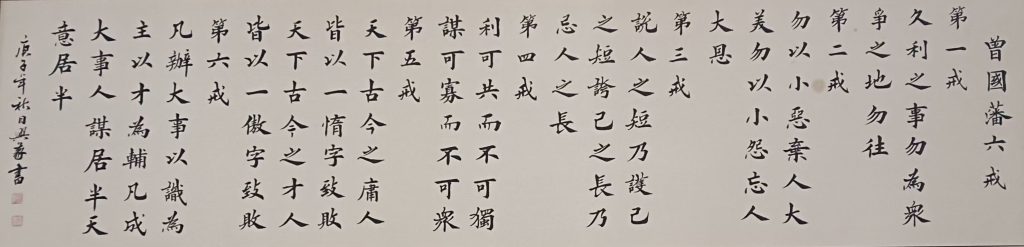 曾國藩六戒
第一戒
久利之事勿為衆
爭之地勿往
第二戒
勿以小惡棄人大
美勿以小怨忘人
大恩
第三戒
說人之短乃護己
之短誇己之長乃
忌人之長
第四戒
利可共而不可獨
謀可寡而不可衆
第五戒
天下古今之庸人
皆以一惰字致敗
天下古今之才人
皆以一傲字致敗
第六戒
凡辦大事以識為
主以才為輔凡成
大事人謀居半天
意居半
庚子年秋日書